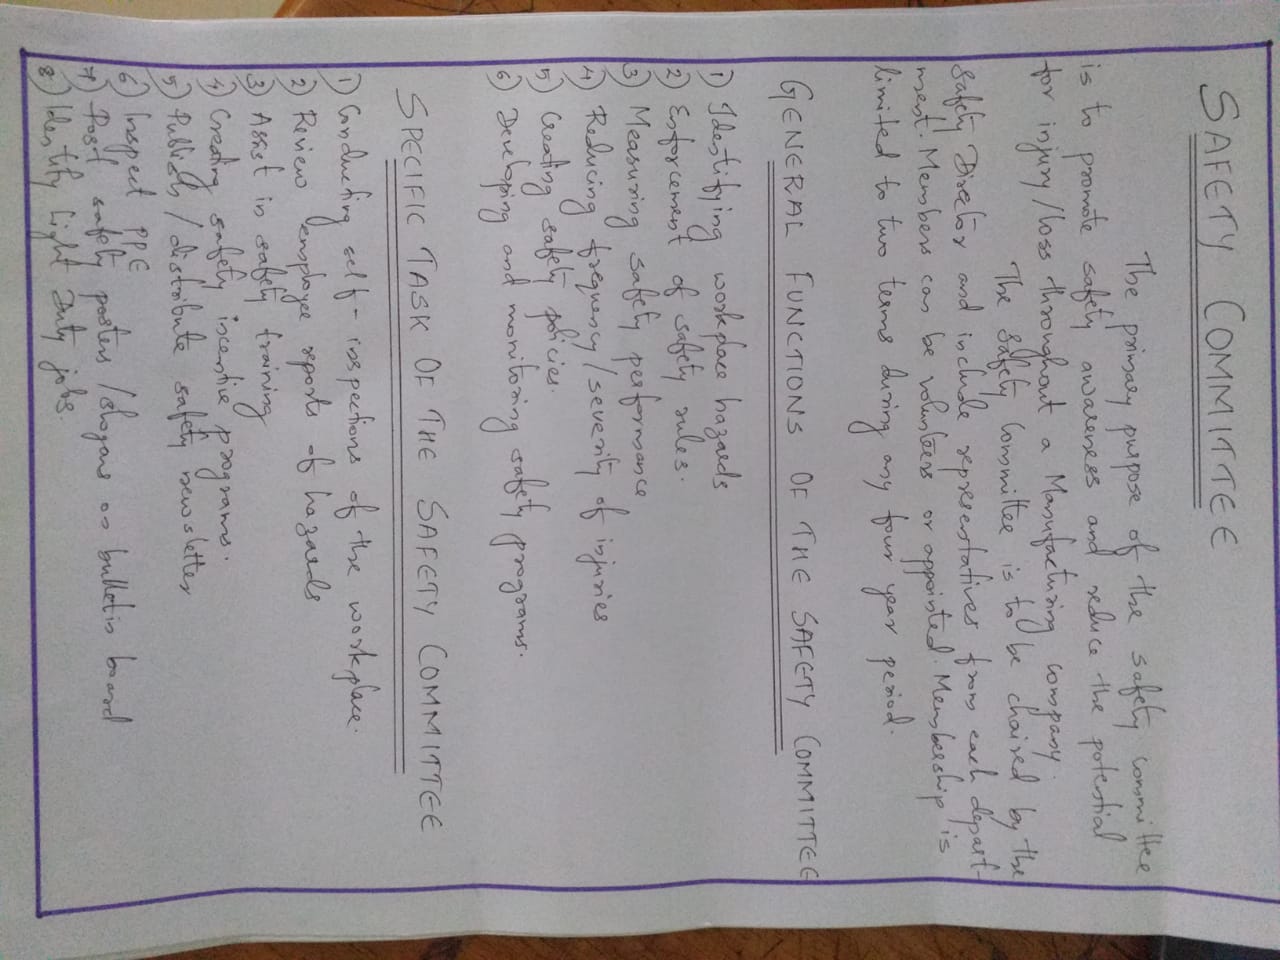 SAFETY COMMITTEE
The primary purpose of the safety committee
is to promote safety awareness and reduce the potential
for injury/loss throughout a Manufacturing company.
The safety committee is to be chaired by the
Safety Director and include representatives from each depart-
ment. Members can be volunteers or appointed. Membership is
limited to two terms during any four year period.
GENERAL FUNCTIONS OF THE SAFETY COMMITTEE
1) Identifying workplace hazards
2) Enforcement of safety rules.
3) Measuring safety performance
4) Reducing frequency/severity of injuries
5) Creating safety policies.
6) Developing and monitoring safety programs.
SPECIFIC TASK OF THE SAFETY COMMITTEE
1) Conducting self-inspections of the workplace.
2) Review employee reports of hazards
3) Assist in safety training
4) Creating safety incentive programs.
5) Publish/distribute safety newsletter
6) Inspect PPE
7) Post safety posters/slogans on bulletin board
8) Identify light Duty jobs.